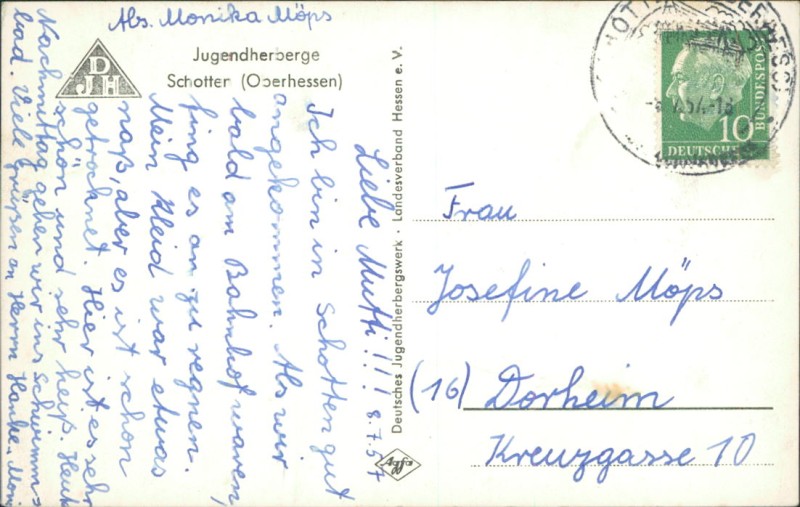 Abs. Monika Möps
DJH
Jugendherberge
Schotten (Oberhessen)
8.7.57
Liebe Mutti!!!
Ich bin in Schotten gut
angekommen. Als wir
bald am Bahnhof waren,
fing es an zu regnen.
Mein Kleid war etwas
naß, aber es ist schon
getrocknet. Hier ist es sehr
schön und sehr heiß. Heute
Nachmittag gehen wir ins Schwimm-
bad. Viele Grüße an Herrn Hanke. Moni
Deutsches Jugendherbergswerk · Landesverband Hessen e. V.
Agfa
DEUTSCHE
BUNDESPOST
10
Frau
Josefine Möps
(16) Dorheim
Kreuzgasse 10